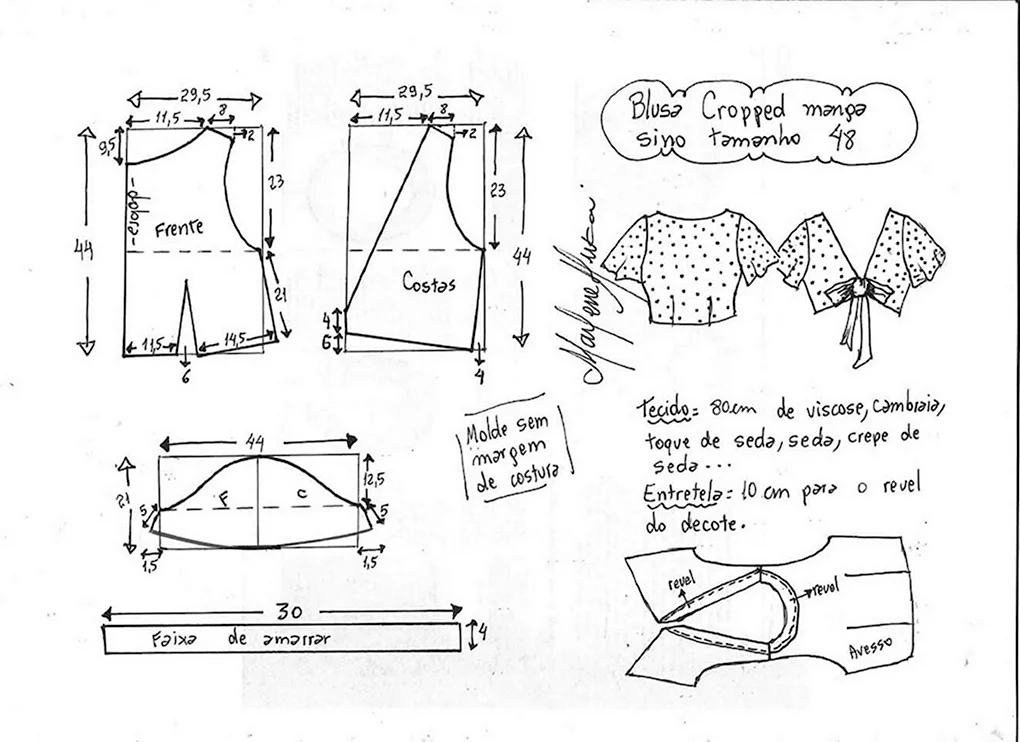 Blusa Cropped manga
sino tamanho 48
29,5
11,5
8
2
9,5
23
44
-dobra-
Frente
21
11,5
14,5
6
29,5
11,5
8
2
23
44
Costas
4
6
4
Marlene Mukai
Tecido= 80cm de viscose, cambraia,
toque de seda, seda, crepe de
seda...
Entretela= 10 cm para o revel
do decote.
Molde sem
margem
de costura
44
21
12,5
F
C
5
5
1,5
1,5
30
Faixa de amarrar
4
revel
revel
Avesso